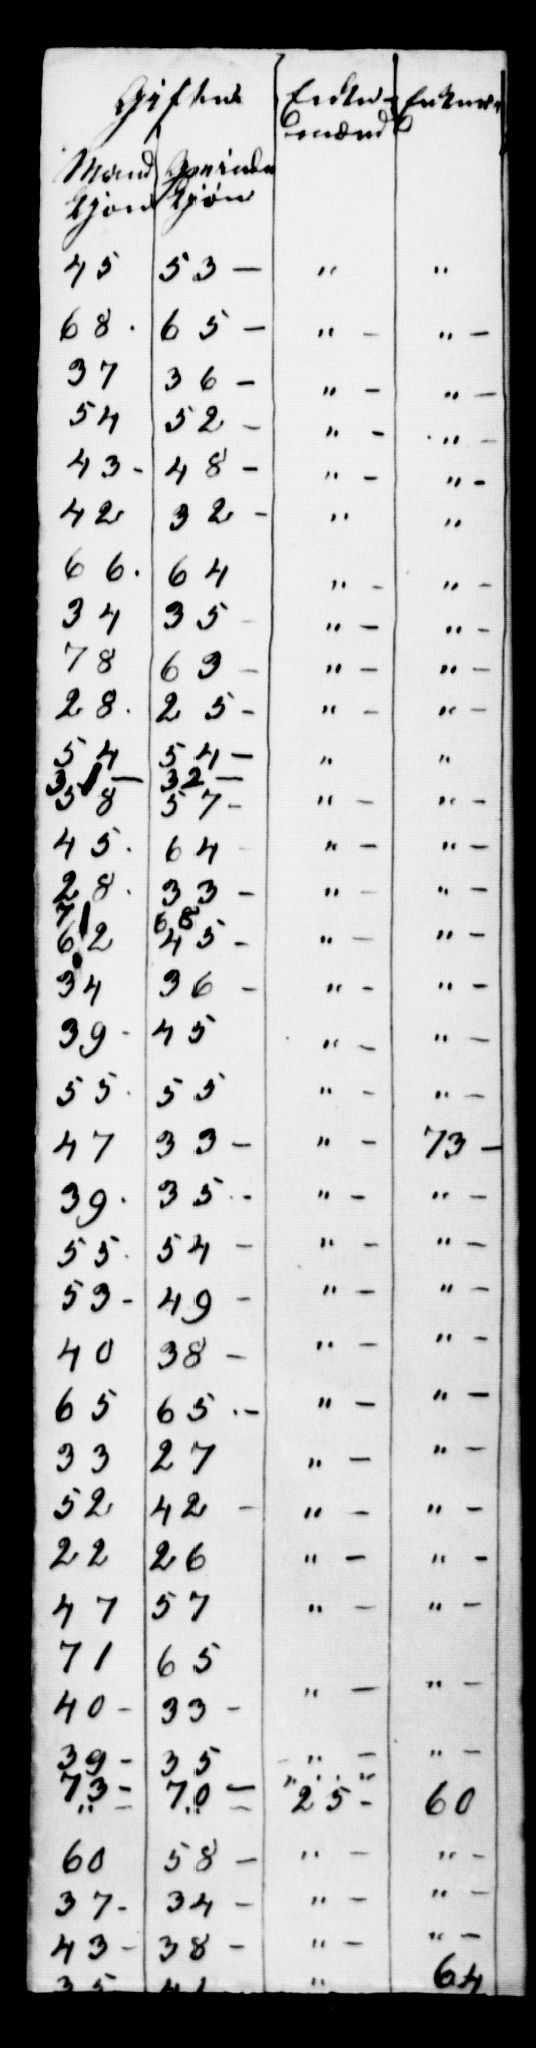 Gifte Enke- Enker
mænd
Mand Qvinde
kjøn kjøn
45 53 — " "
68. 65 — " — " —
37 36 — " — " —
54 52 — " — " —
43 - 48 — " — " —
42 32 — " "
66. 64 " — " —
34 35 — " — " —
78 63 — " — " —
28. 25 — " — " —
54 54 — " "
31 — 32 —
58 57 — " — " —
45. 64 - " — " —
28. 33 — " — " —
71 68
62 45 — " — " —
34 36 — " — " —
39 - 45 " — " —
55. 55 " — " —
47 33 — " — 73 —
39. 35 — " — " —
55. 54 — " — " —
53 - 49 — " — " —
40 38 — " — " —
65 65 — " — " —
33 27 " — " —
52 42 — " — " —
22 26 " — " —
47 57 " — " —
71 65
40 - 33 — " — " —
39 - 35 " — " —
73 - 70 — " "
" — " — 25 - 60
60 58 — " — " —
37 - 34 — " — " —
43 - 38 — " — " —
35 41 " 64